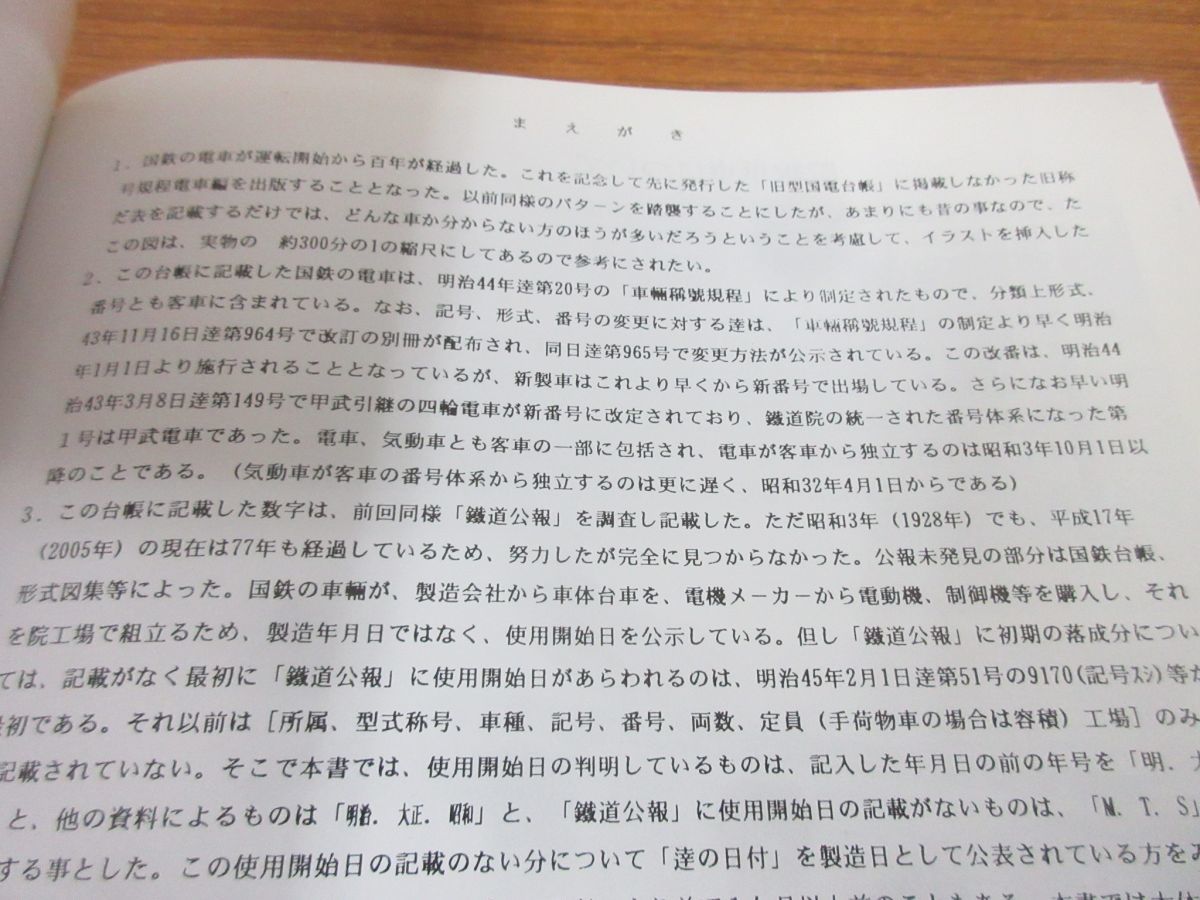 まえがき
1．国鉄の電車が運転開始から百年が経過した。これを記念して先に発行した「旧型国電台帳」に掲載しなかった旧称
号規程電車編を出版することとなった。以前同様のパターンを踏襲することにしたが、あまりにも昔の事なので、た
だ表を記載するだけでは、どんな車か分からない方のほうが多いだろうということを考慮して、イラストを挿入した
この図は、実物の　約300分の1の縮尺にしてあるので参考にされたい。
2．この台帳に記載した国鉄の電車は、明治44年達第20号の「車輛稱號規程」により制定されたもので、分類上形式、
番号とも客車に含まれている。なお、記号、形式、番号の変更に対する達は、「車輛稱號規程」の制定より早く明治
43年11月16日達第964号で改訂の別冊が配布され、同日達第965号で変更方法が公示されている。この改番は、明治44
年1月1日より施行されることとなっているが、新製車はこれより早くから新番号で出場している。さらになお早い明
治43年3月8日達第149号で甲武引継の四輪電車が新番号に改定されており、鐵道院の統一された番号体系になった第
1号は甲武電車であった。電車、気動車とも客車の一部に包括され、電車が客車から独立するのは昭和3年10月1日以
降のことである。（気動車が客車の番号体系から独立するのは更に遅く、昭和32年4月1日からである）
3．この台帳に記載した数字は、前回同様「鐵道公報」を調査し記載した。ただ昭和3年（1928年）でも、平成17年
（2005年）の現在は77年も経過しているため、努力したが完全に見つからなかった。公報未発見の部分は国鉄台帳、
形式図集等によった。国鉄の車輛が、製造会社から車体台車を、電機メーカーから電動機、制御機等を購入し、それ
を院工場で組立るため、製造年月日ではなく、使用開始日を公示している。但し「鐵道公報」に初期の落成分につい
ては、記載がなく最初に「鐵道公報」に使用開始日があらわれるのは、明治45年2月1日達第51号の9170(記号ｽｼ)等が
最初である。それ以前は［所属、型式称号、車種、記号、番号、両数、定員（手荷物車の場合は容積）工場］のみ
記載されていない。そこで本書では、使用開始日の判明しているものは、記入した年月日の前の年号を「明．大
と、他の資料によるものは「明治．大正．昭和」と、「鐵道公報」に使用開始日の記載がないものは、「M．T．S」
する事とした。この使用開始日の記載のない分について「達の日付」を製造日として公表されている方を